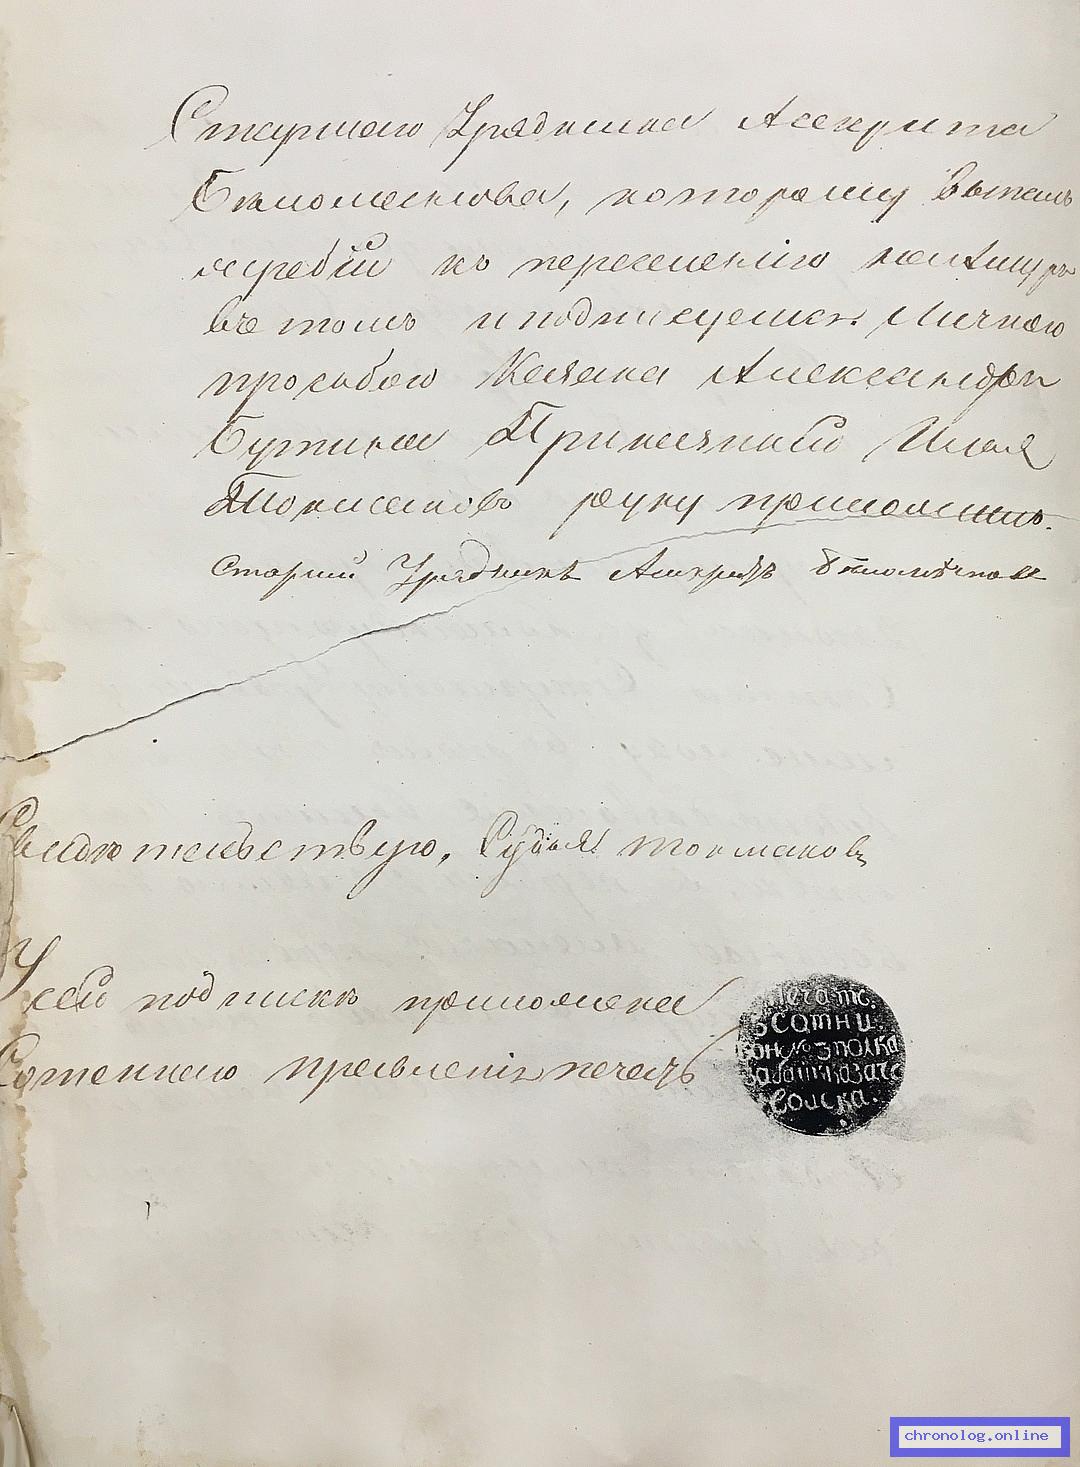 Старшаго Урядника Асекрита
Бѣломеснова, которому выпалъ
жребій къ переселенію на Амуръ
въ томъ и подписуемся. Личною
прозьбою Казака Александра
Бутина Приказный Илья
Токмаковъ руку приложилъ.
Старшій Урядникъ Аскритъ Бѣломѣсновъ
Свидѣтельствую, Судья Токмаковъ
У сей подписки приложена
Сотеннаго правленія печать
Печать.
Сотни
кон. № 3 полка
Забайк. казач.
войска.
chronolog.online